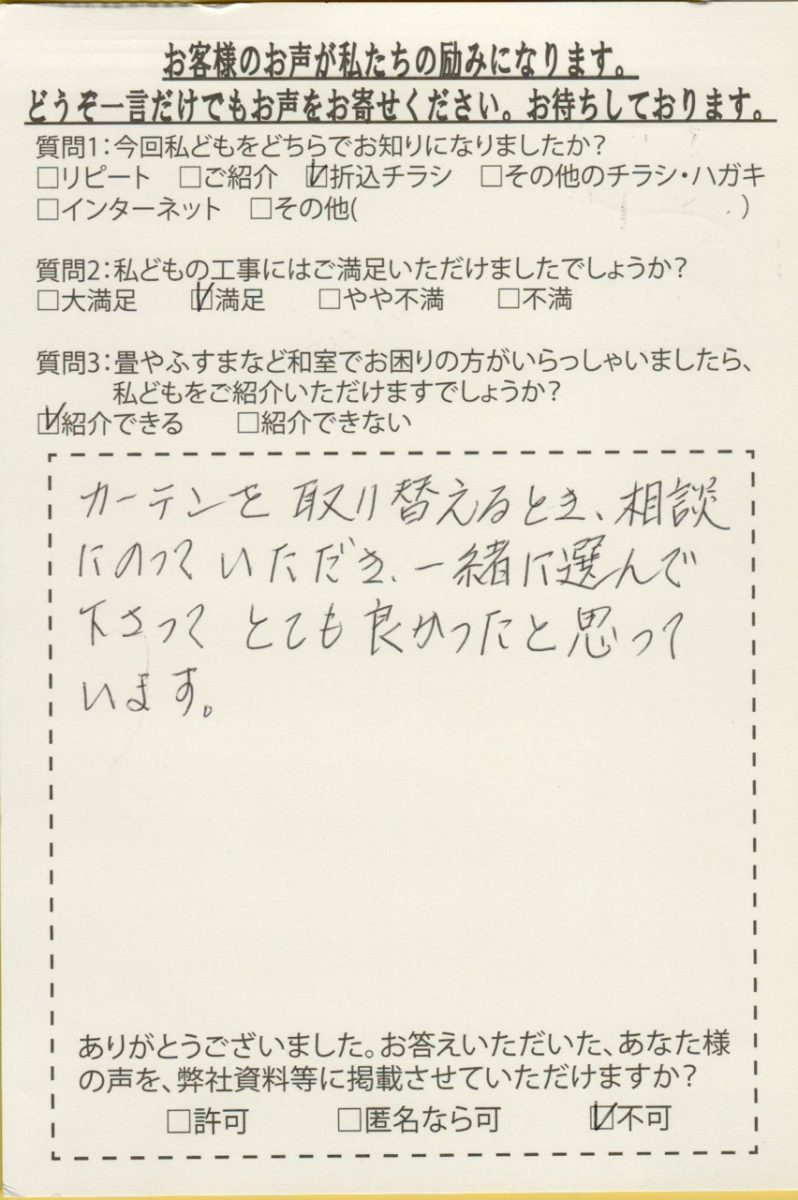 お客様のお声が私たちの励みになります。
どうぞ一言だけでもお声をお寄せください。お待ちしております。
質問1：今回私どもをどちらでお知りになりましたか？
□リピート □ご紹介 ☑折込チラシ □その他のチラシ・ハガキ
□インターネット □その他( )
質問2：私どもの工事にはご満足いただけましたでしょうか？
□大満足 ☑満足 □やや不満 □不満
質問3：畳やふすまなど和室でお困りの方がいらっしゃいましたら、
私どもをご紹介いただけますでしょうか？
☑紹介できる □紹介できない
カーテンを取り替えるとき、相談
にのっていただき、一緒に選んで
下さってとても良かったと思って
います。
ありがとうございました。お答えいただいた、あなた様
の声を、弊社資料等に掲載させていただけますか？
□許可 □匿名なら可 ☑不可